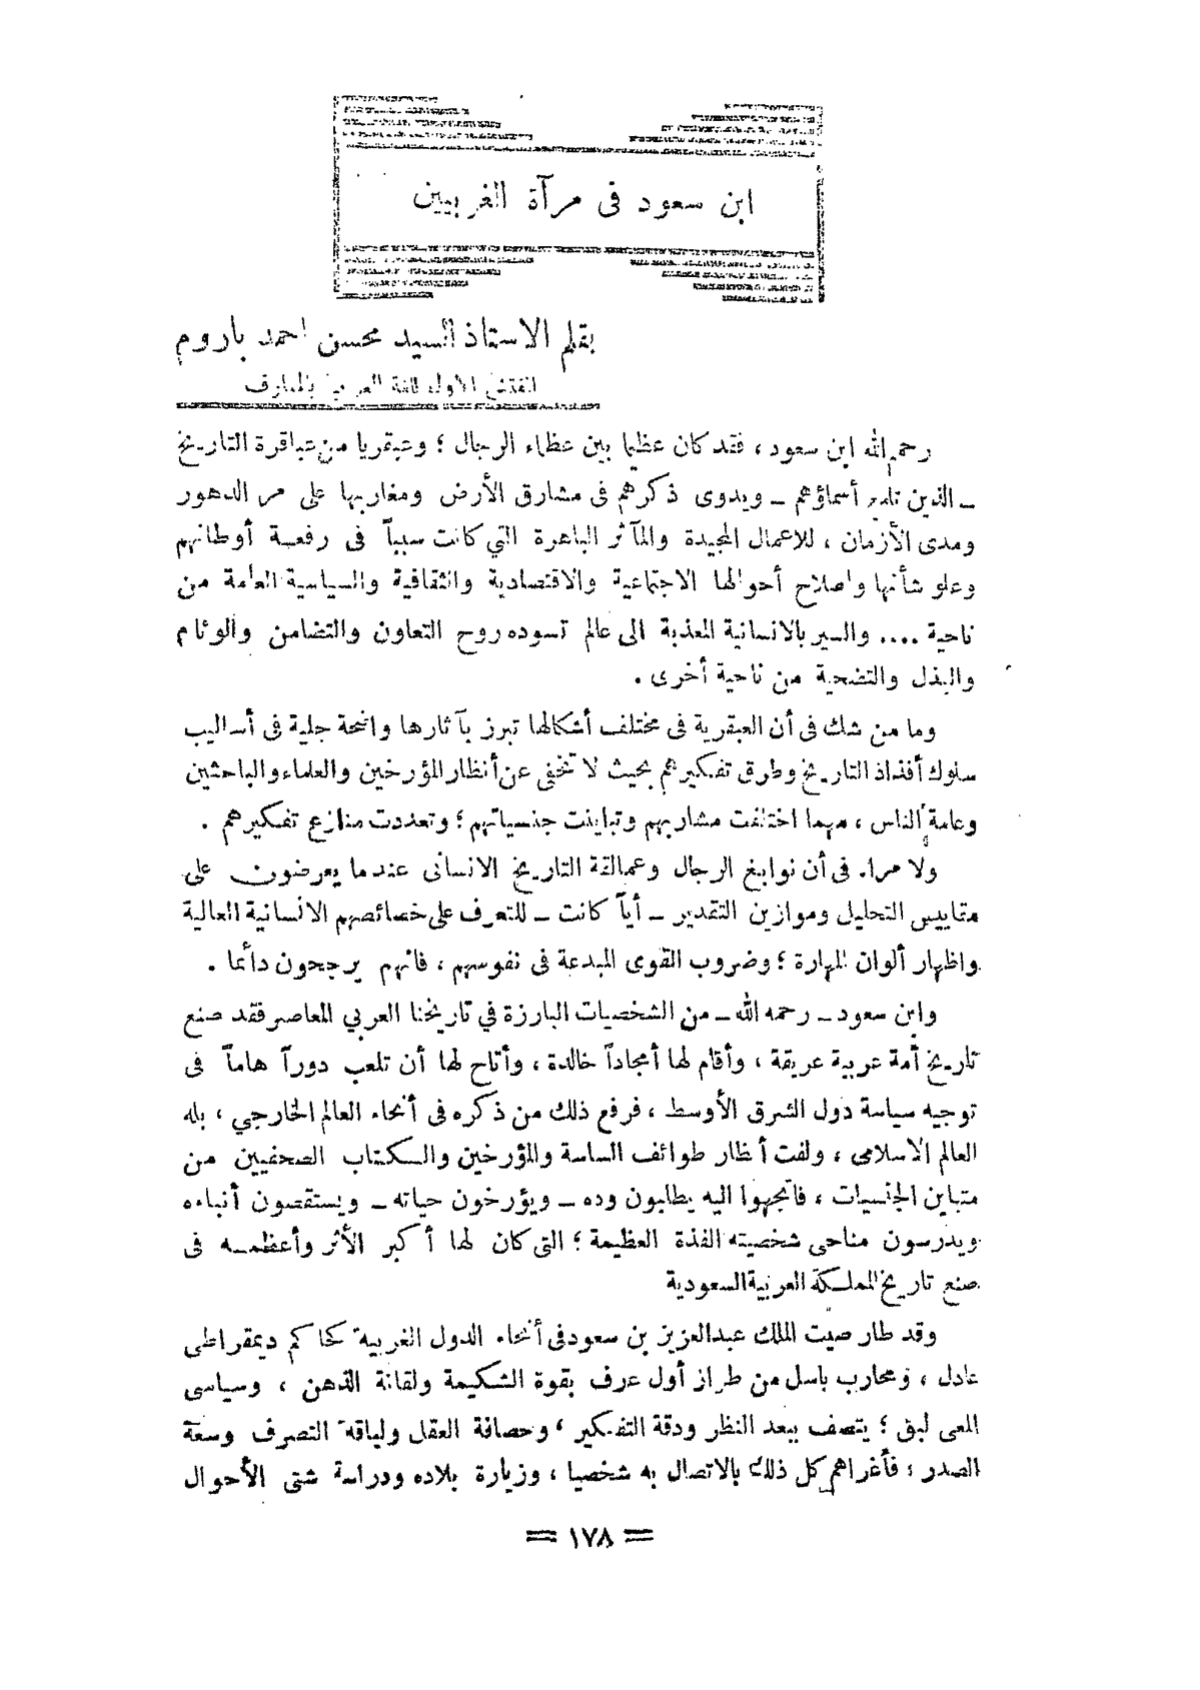 ابن سعود فى مرآة الغربيين
بقلم الاستاذ السيد محسن احمد باروم
المفتش الاول للغة العربية بالمعارف
رحم الله ابن سعود ، فقد كان عظيما بين عظماء الرجال ؛ وعبقريا من عباقرة التاريخ
ــ الذين تلمع أسماؤهم ــ ويدوى ذكرهم فى مشارق الأرض ومغاربها على مر الدهور
ومدى الأزمان ، للاعمال المجيدة والمآثر الباهرة التي كانت سبباً فى رفعة أوطانهم
وعلو شأنها واصلاح أحوالها الاجتماعية والاقتصادية والثقافية والسياسية العامة من
ناحية .... والسير بالانسانية المعذبة الى عالم تسوده روح التعاون والتضامن والوئام
والبذل والتضحية من ناحية أخرى .
وما من شك فى أن العبقرية فى مختلف أشكالها تبرز بآثارها واضحة جلية فى أساليب
سلوك أفذاذ التاريخ وطرق تفكيرهم بحيث لا تخفى عن أنظار المؤرخين والعلماء والباحثين
وعامة الناس ، مهما اختلفت مشاربهم وتباينت جنسياتهم ؛ وتعددت منازع تفكيرهم .
ولا مراء فى أن نوابغ الرجال وعمالقة التاريخ الانسانى عندما يعرضون على
مقاييس التحليل وموازين التقدير ــ أياً كانت ــ للتعرف على خصائصهم الانسانية العالية
واظهار ألوان المهارة ؛ وضروب القوى المبدعة فى نفوسهم ، فانهم يرجحون دائما .
وابن سعود ــ رحمه الله ــ من الشخصيات البارزة في تاريخنا العربي المعاصر فقد صنع
تاريخ أمة عربية عريقة ، وأقام لها أمجاداً خالدة ، وأتاح لها أن تلعب دوراً هاماً فى
توجيه سياسة دول الشرق الأوسط ، فرفع ذلك من ذكره فى أنحاء العالم الخارجي ، بله
العالم الاسلامى ، ولفت أنظار طوائف الساسة والمؤرخين والكتاب الصحفيين من
متباين الجنسيات ، فاتجهوا اليه يطلبون وده ــ ويؤرخون حياته ــ ويستقصون أنباءه
ويدرسون مناحى شخصيته الفذة العظيمة ؛ التى كان لها أكبر الأثر وأعظمه فى
صنع تاريخ المملكة العربية السعودية
وقد طار صيت الملك عبدالعزيز بن سعود فى أنحاء الدول الغربية كحاكم ديمقراطى
عادل ، ومحارب باسل من طراز أول عرف بقوة الشكيمة ولقانة الذهن ، وسياسى
المعى لبق ؛ يتصف ببعد النظر ودقة التفكير ، وحصافة العقل ولباقة التصرف وسعة
الصدر ، فأغراهم كل ذلك بالاتصال به شخصيا ، وزيارة بلاده ودراسة شتى الأحوال
= ١٧٨ =